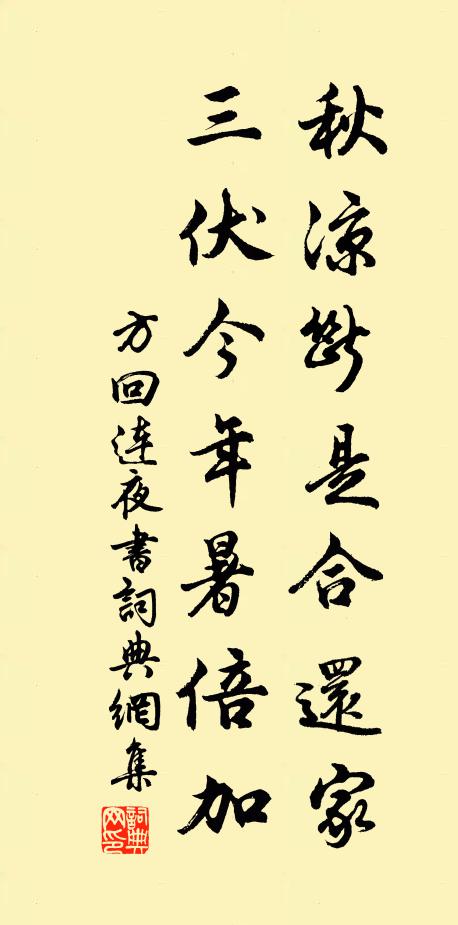 秋涼斷是合還家
三伏今年暑倍加
方回連夜書詞典網集
詞典网印